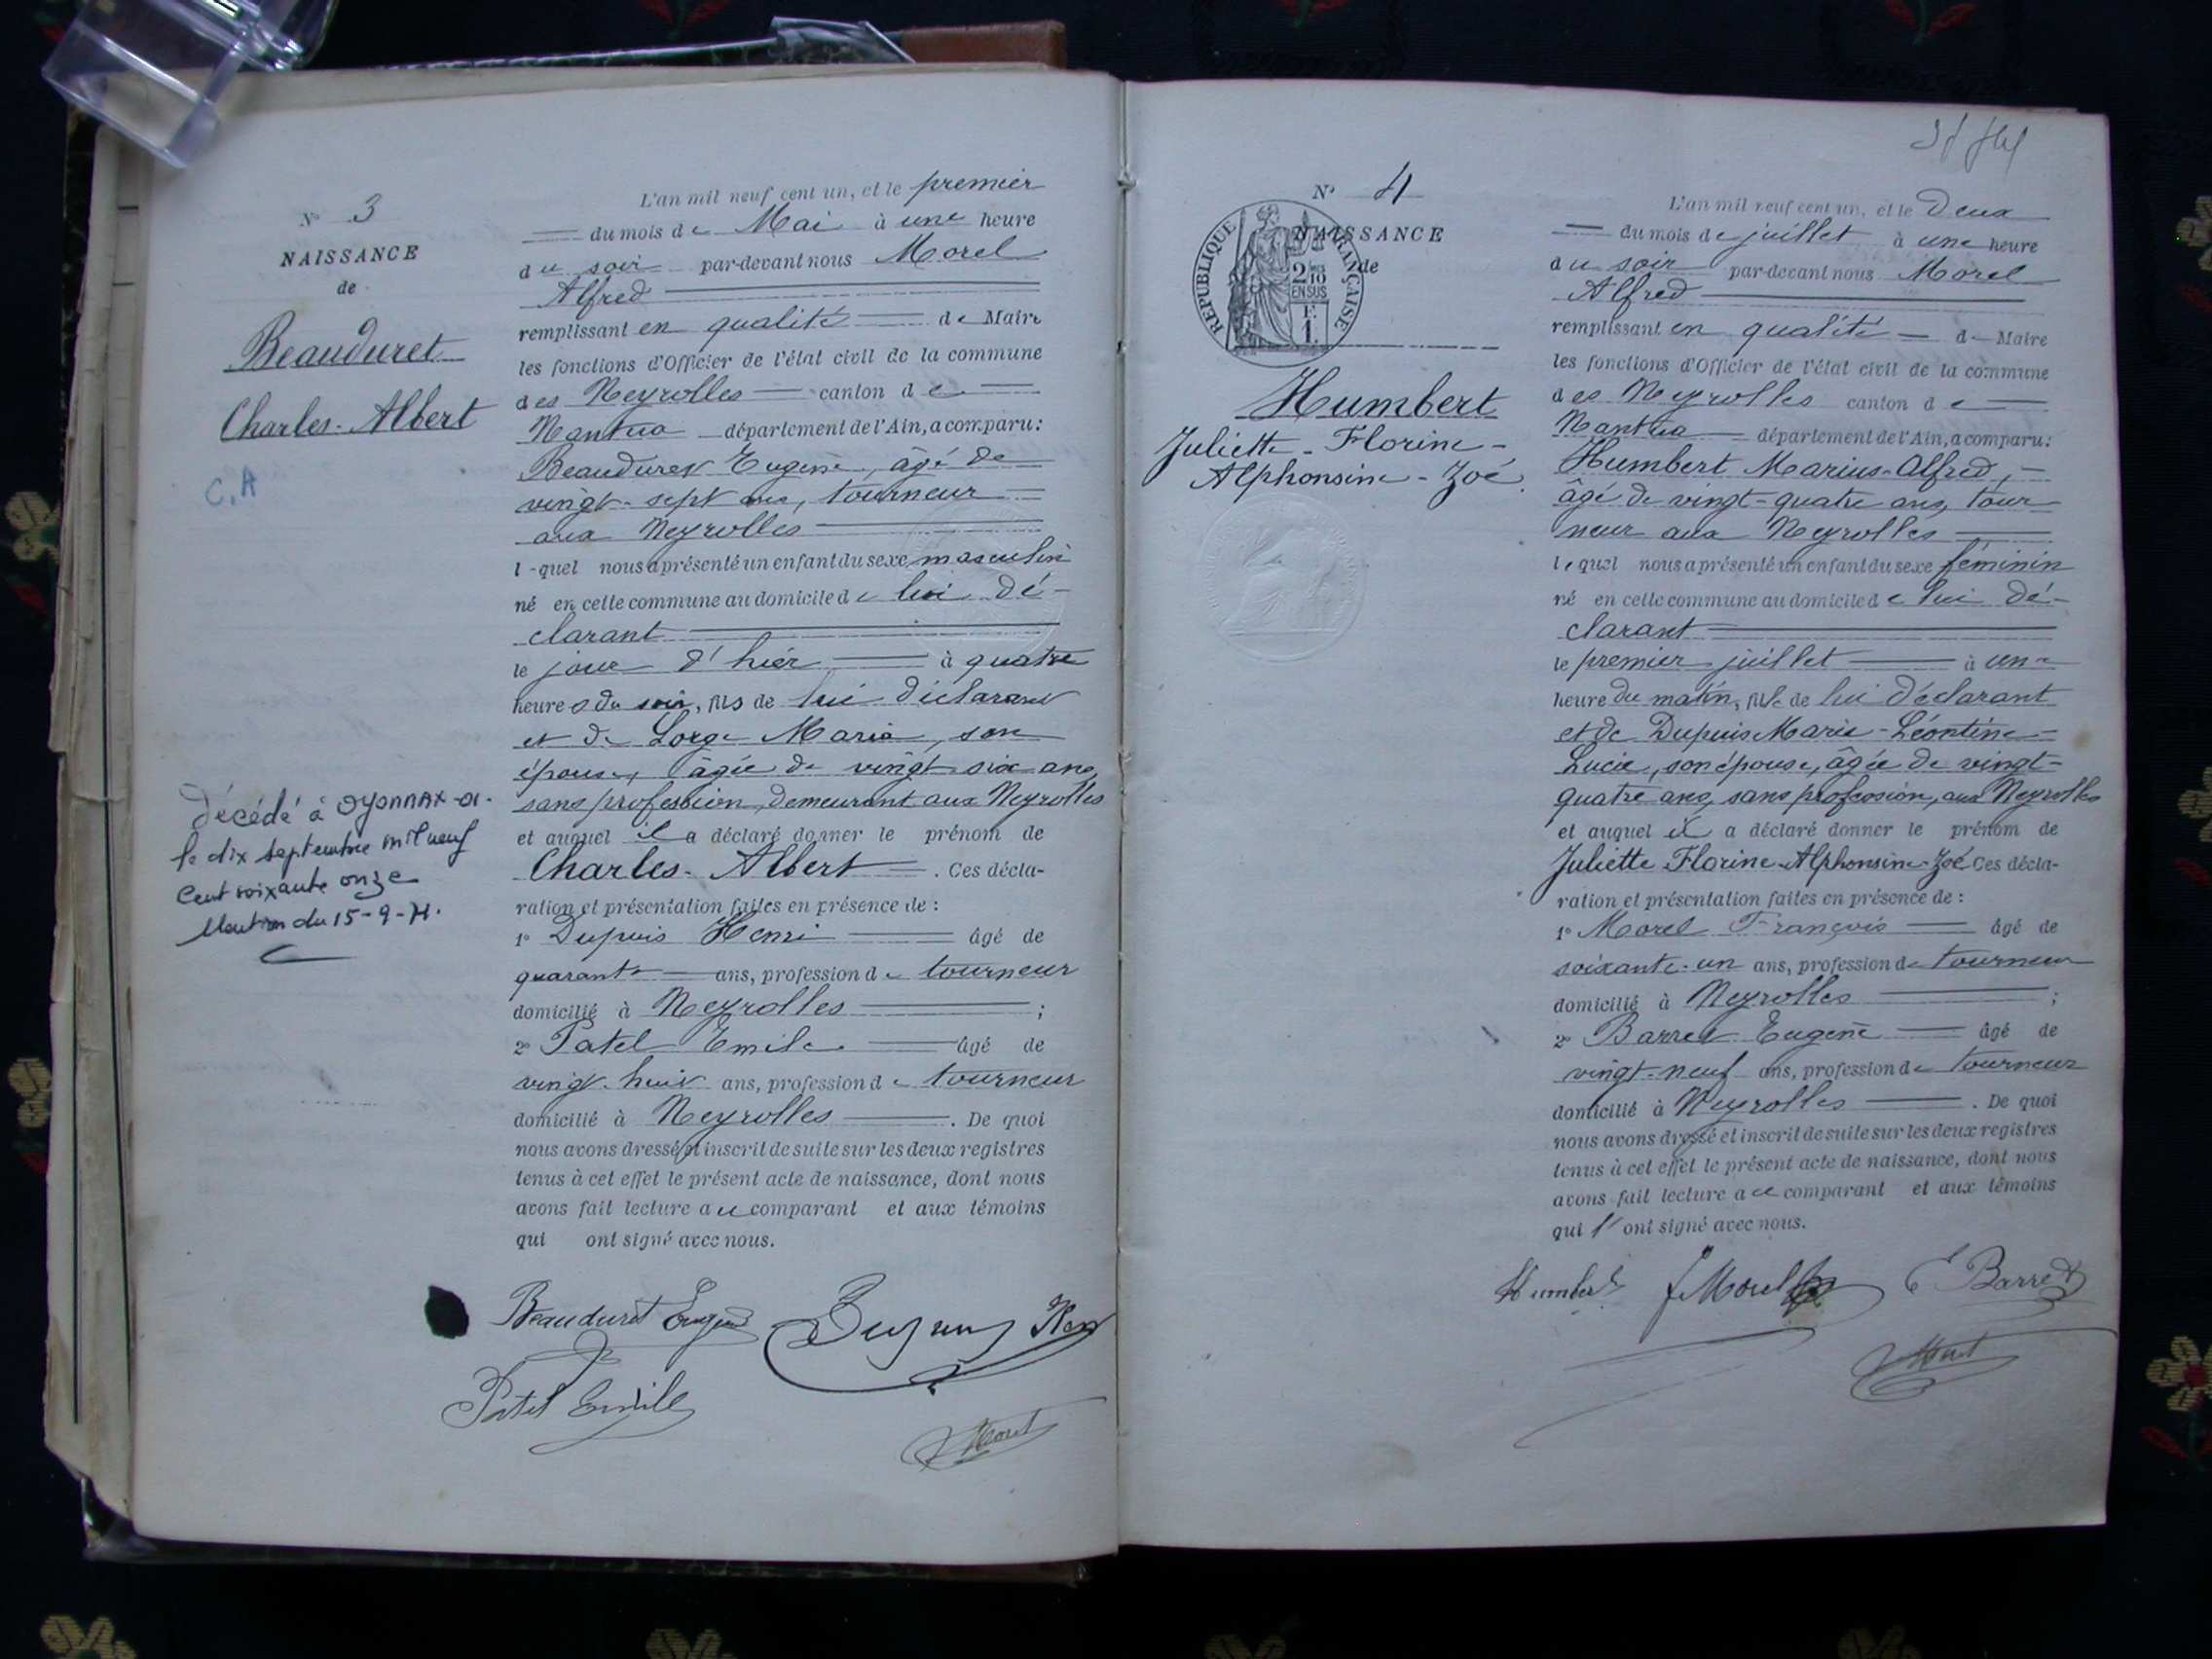 N° 3
NAISSANCE
de
Beauduret
Charles-Albert
C.A
décédé à Oyonnax-01-
le dix septembre mil neuf
cent soixante onze
Mention du 15-9-71.
L'an mil neuf cent un, et le premier
du mois de Mai à une heure
du soir par-devant nous Morel
Alfred
remplissant en qualité de Maire
les fonctions d'Officier de l'état civil de la commune
des Neyrolles canton de
Nantua département de l'Ain, a comparu:
Beauduret Eugène, âgé de
vingt-sept ans, tourneur
aux Neyrolles
l-quel nous a présenté un enfant du sexe masculin
né en cette commune au domicile de lui dé-
clarant
le jour d'hier à quatre
heures du soir, fils de lui déclarant
et de Lorge Maria, son
épouse, âgée de vingt six ans,
sans profession, demeurant aux Neyrolles
et auquel il a déclaré donner le prénom de
Charles-Albert. Ces décla-
ration et présentation faites en présence de:
1° Dupuis Henri âgé de
quarante ans, profession de tourneur
domicilié à Neyrolles;
2° Patel Emile âgé de
vingt-huit ans, profession de tourneur
domicilié à Neyrolles. De quoi
nous avons dressé et inscrit de suite sur les deux registres
tenus à cet effet le présent acte de naissance, dont nous
avons fait lecture au comparant et aux témoins
qui ont signé avec nous.
Beauduret Eugène
Dupuis Hen
Patel Emile
Morel
N° 4
NAISSANCE
de
REPUBLIQUE FRANÇAISE
2/10
EN SUS
F.
1.
Humbert
Juliette-Florine-
Alphonsine-Zoé
L'an mil neuf cent un, et le Deux
du mois de juillet à une heure
du soir par-devant nous Morel
Alfred
remplissant en qualité de Maire
les fonctions d'Officier de l'état civil de la commune
des Neyrolles canton de
Nantua département de l'Ain, a comparu:
Humbert Marius-Alfred,
âgé de vingt-quatre ans, tour
neur aux Neyrolles
lequel nous a présenté un enfant du sexe féminin
né en cette commune au domicile de lui dé-
clarant
le premier juillet à une
heure du matin, fille de lui déclarant
et de Dupuis Marie-Léontine-
Lucie, son épouse, âgée de vingt-
quatre ans, sans profession, aux Neyrolles
et auquel il a déclaré donner le prénom de
Juliette-Florine-Alphonsine-Zoé Ces décla-
ration et présentation faites en présence de:
1° Morel François âgé de
soixante-un ans, profession de tourneur
domicilié à Neyrolles;
2° Barret Eugène âgé de
vingt-neuf ans, profession de tourneur
domicilié à Neyrolles. De quoi
nous avons dressé et inscrit de suite sur les deux registres
tenus à cet effet le présent acte de naissance, dont nous
avons fait lecture au comparant et aux témoins
qui l'ont signé avec nous.
Humbert
F Morel
E Barret
Morel